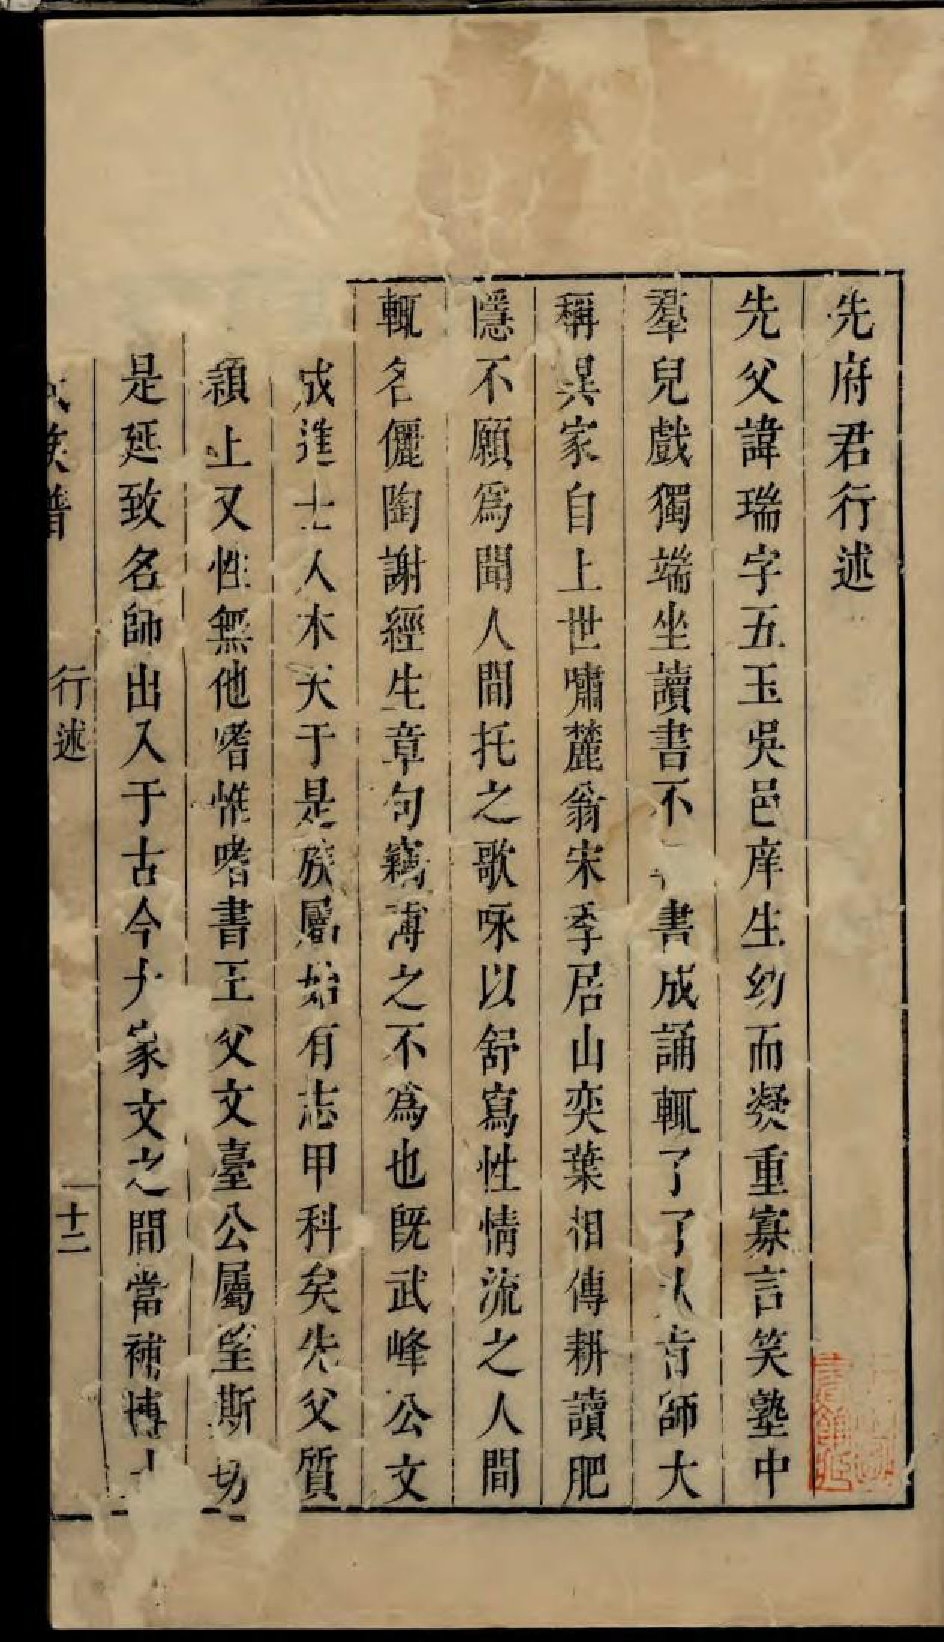 先府君行述
先父諱瑞字五玉吳邑庠生幼而凝重寡言笑塾中
羣兒戲獨端坐讀書不書成誦輒了了大肯師大
稱異家自上世嘯麓翁宋季居山奕葉相傳耕讀肥
隱不願爲聞人間托之歌咏以舒寫性情流之人間
輒名儷陶謝經生章句竊薄之不爲也旣武峰公文
成進士人木天于是族屬始有志甲科矣先父質
穎上又性無他嗜惟嗜書王父文臺公屬望斯切
是延致名師出入于古今大家文之間當補博士
族譜 行述 十二